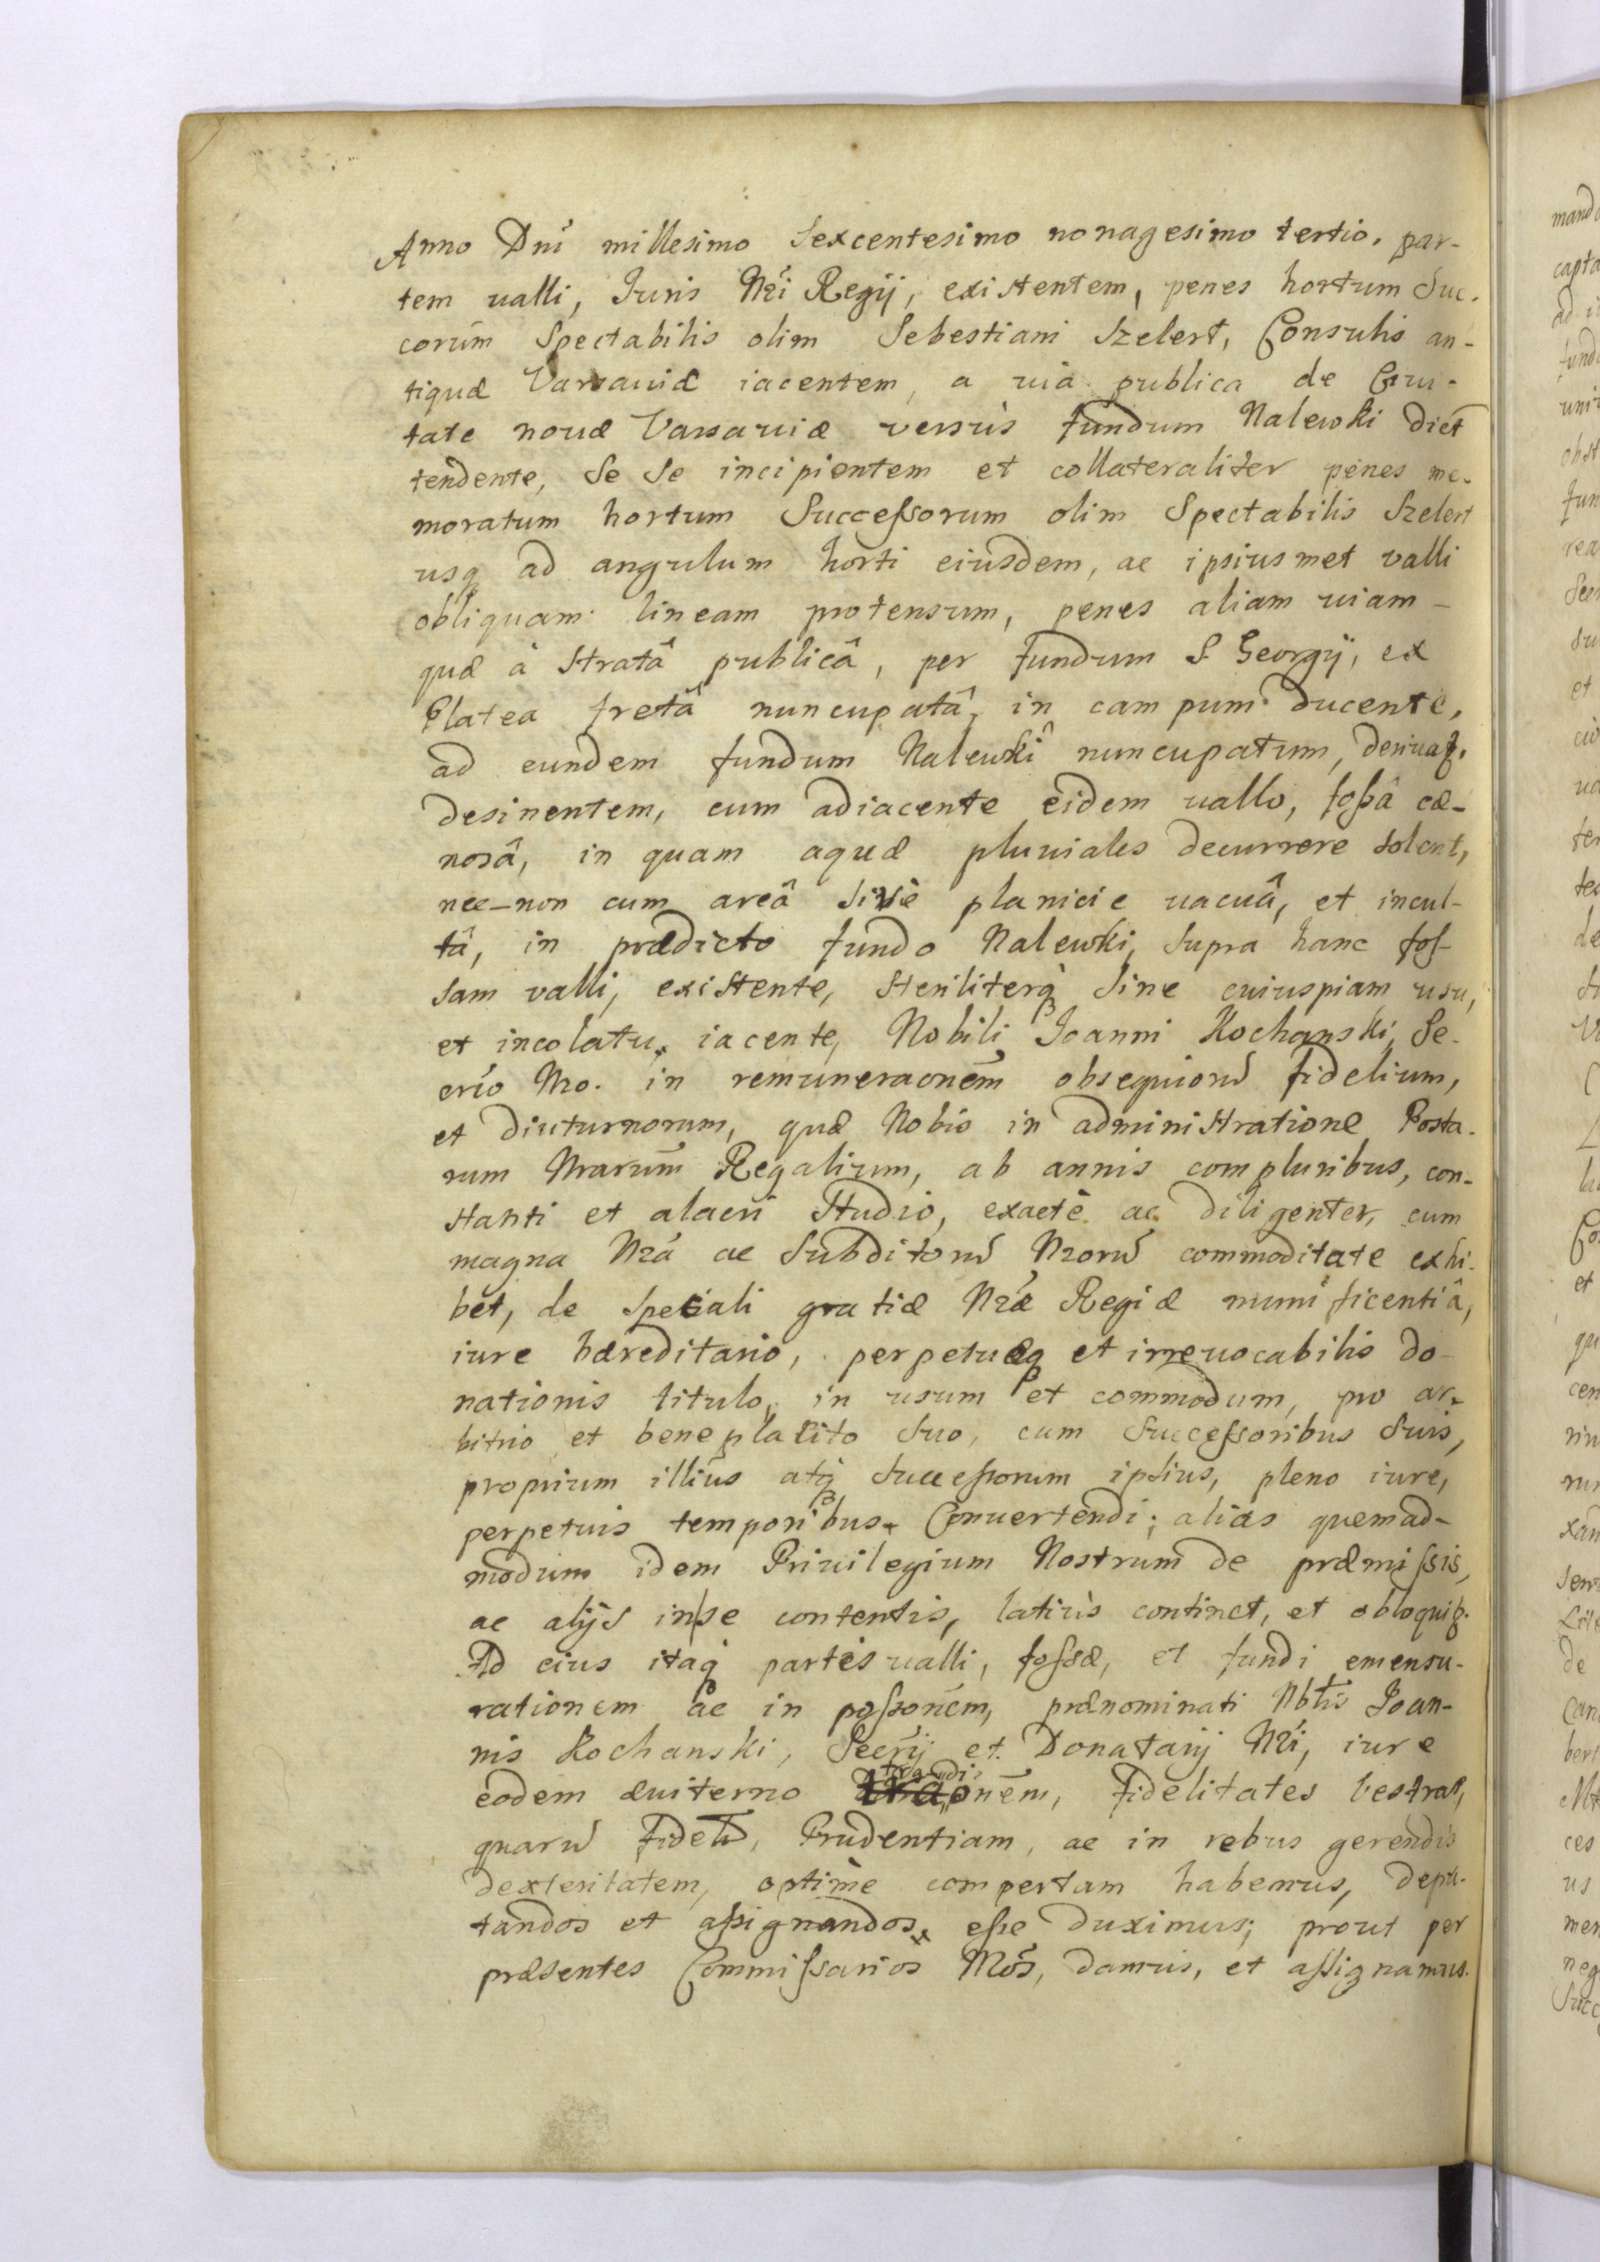 Anno Dnī millesimo Sexcentesimo nonagesimo tertio. par-
tem ualli, Iuris Nri Regij, existentem, penes hortum Suc-
corum Spectabilis olim Sebestiani Szelert, Consulis an-
tiquæ Varsauiæ iacentem, a uia publica de Ciui-
tate nouæ Varsauiæ versùs fundum Nalewki dict
tendente, Se Se incipientem et collateraliter penes me-
moratum hortum Successorum olim Spectabilis Szelert
usq ad angulum horti eiusdem, ac ipsiusmet valli
obliquam lineam protensum, penes aliam uiam
quæ à Stratâ publicâ, per fundum S. Georgij, ex
Platea fretâ nuncupatâ, in campum ducente,
ad eundem fundum Nalewki nuncupatum, deriuat,
desinentem, cum adiacente eidem uallo, fossâ cæ-
nosâ, in quam aquæ pluuiales decurrere solent,
nec-non cum areâ Siuè planicie uacuâ, et incul-
tâ, in prædicto fundo Nalewki, Supra hanc fos-
sam valli, existente, Steriliterq Sine cuiuspiam usu,
et incolatu iacente, Nobili Ioanni Kochanski, Se-
crio Nro. in remuneraonēm obsequiorū fidelium,
et diuturnorum, quæ Nobis in administratione Posta-
rum Nrarum Regalium, ab annis compluribus, con-
stanti et alacri Studio, exactè ac diligenter, cum
magna Nrā ac Subditorū Nrorū commoditate exhi-
bet, de Speciali gratiæ Nræ Regiæ munificentiâ,
iure hæreditario, perpetuæq et irreuocabilis do-
nationis titulo, in usum et commodum, pro ar-
bitrio et beneplacito Suo, cum Successoribus Suis,
proprium illius atq Successorum ipsius, pleno iure,
perpetuis temporibus Conuertendi; aliàs quemad-
modum idem Priuilegium Nostrum de præmissis,
ac alijs in se contentis, latiùs continet, et obloquit.
Ad eius itaq partis ualli, fossæ, et fundi emensu-
rationem ac in possonēm, prænominati Nblis Ioan-
nis Kochanski, Secrij et Donatarij Nri, iure
eodem æuiterno tradi onēm, fidelitates vestras,
quarū fidem, Prudentiam, ac in rebus gerendis
dexteritatem, optimè compertam habemus, depu-
tandos et assignandos esse duximus; prout per
præsentes Commissarios Nros, damus, et assignamus.